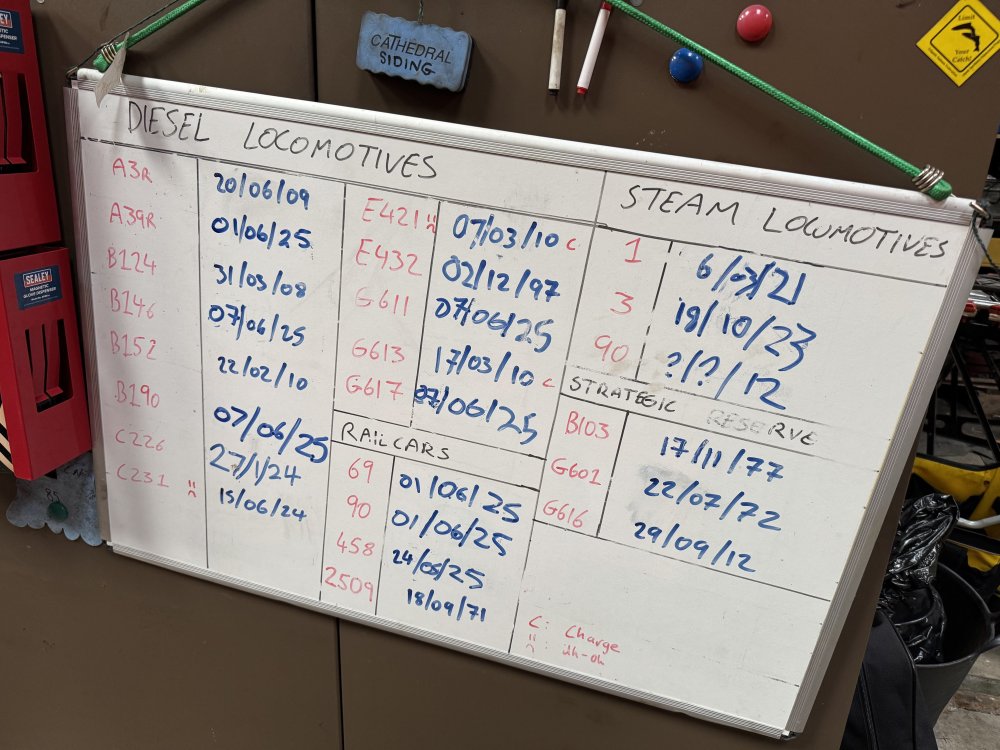 SEALEY
CATHEDRAL
SIDING
Limit
Your
Catch!
SEALEY
MAGNETIC
GLOVE DISPENSER
DIESEL LOCOMOTIVES
A3R 20/06/09
A39R 01/06/25
B124 31/03/08
B146 07/06/25
B152 22/02/10
B190 07/06/25
C226 27/1/24
C231 :( 15/06/24
E421 :( 07/03/10 C
E432 02/12/97
G611 07/06/25
G613 17/03/10 C
G617 07/06/25
RAILCARS
69 01/06/25
90 01/06/25
458 24/05/25
2509 18/09/71
STEAM LOCOMOTIVES
1 6/03/21
3 19/10/23
90 ?/?/12
STRATEGIC RESERVE
B103 17/11/77
G601 22/07/72
G616 29/09/12
C: Charge
:( : uh-oh